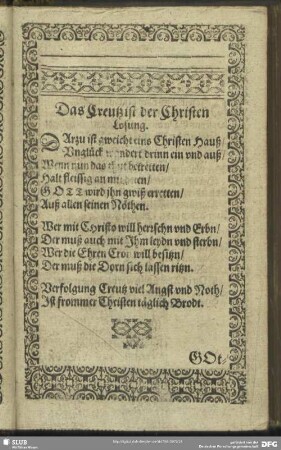 Das Creutz ist der Christen
Losung.
DArzu ist gweicht eins Christen Hauß
Vnglück wandert drinn ein vnd auß/
Wenn nun das thut betretten/
Halt fleissig an mit
GOTT wird jhn gwiß erretten/
Auß allen seinen Nöthen.
Wer mit Christo will herrschn vnd Erbn/
Der muß auch mit Jhm leydn vnd sterbn/
Wer die Ehren Cron will besitzn/
Der muß die Dorn sich lassen ritzn.
Verfolgung Creutz viel Angst vnd Noth/
Ist frommer Christen täglich Brodt.
GOt.
SLUB
DFG